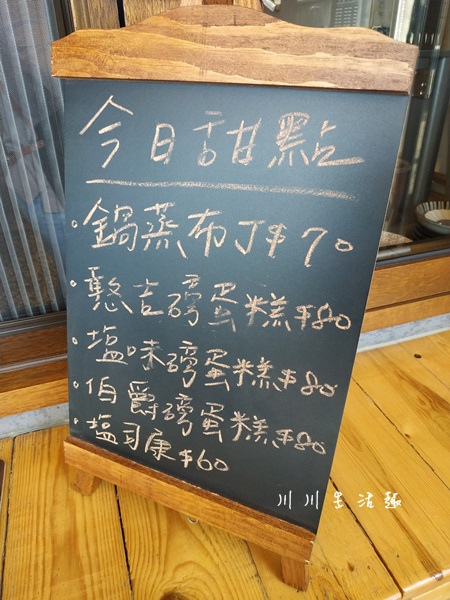 今日甜點
·鍋蒸布丁$70
·憨吉磅蛋糕$80
·塩味磅蛋糕$80
·伯爵磅蛋糕$80
·塩司康$60
川川生活趣